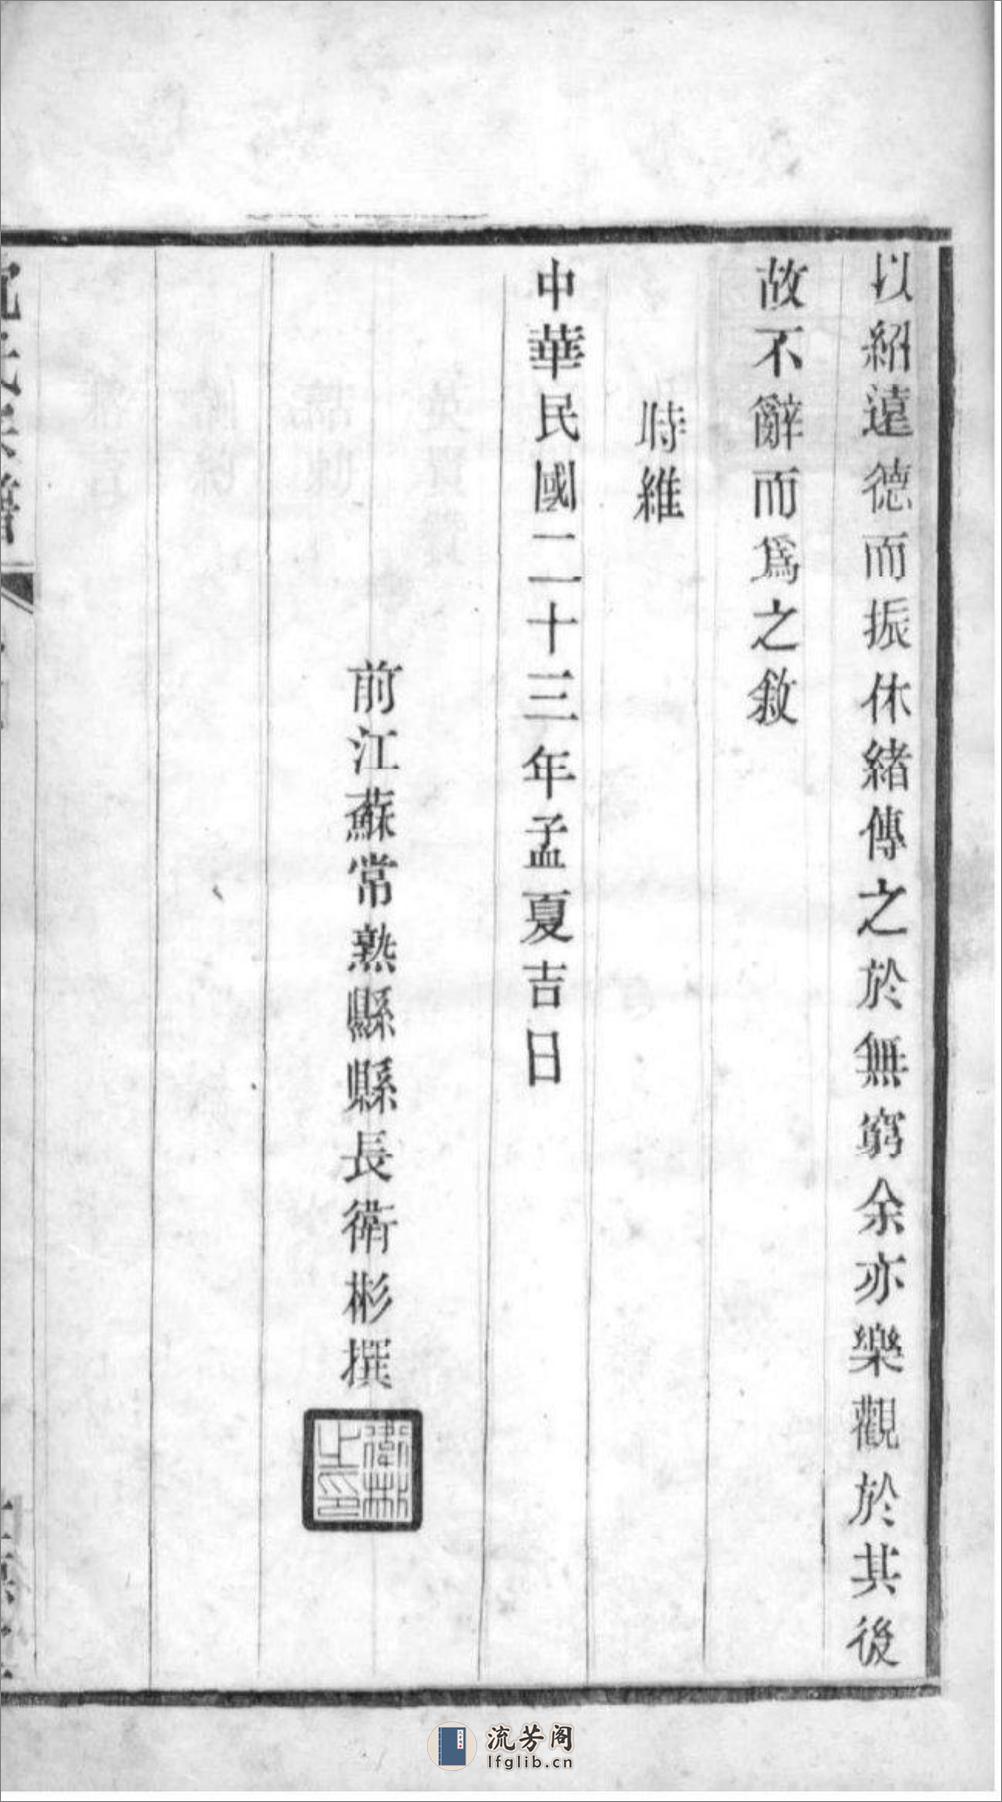 以紹遠德而振休緒傳之於無窮余亦樂觀於其後
故不辭而爲之敘
時維
中華民國二十三年孟夏吉日
前江蘇常熟縣縣長衛彬撰
之印
流芳阁
lfglib.cn